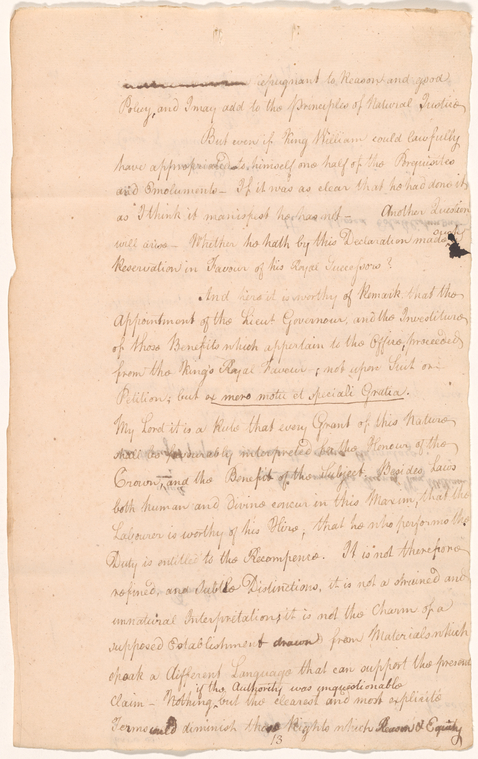 repugnant to Reason and good
Policy, and I may add to the Principles of Natural Justice
But even if King William could lawfully
have appropriated to himself one half of the Perquisites
and Emoluments – If it was as clear that he had done it
as I think it manifest he has not – Another Question
will arise – Whether he hath by this Declaration made
Reservation in Favour of his Royal Successors?
And here it is worthy of Remark, that the
Appointment of the Lieut Governour, and the Investiture
of those Benefits which appertain to the Office, proceeded
from the King's Royal Favour; not upon Suit or
Petition; but ex mero motu et speciali Gratia.
My Lord it is a Rule that every Grant of this Nature
shall be favourably interpreted for the Honour of the
Crown, and the Benefit of the Subject. Besides, Laws
both human and Divine concur in this Maxim, that the
Labourer is worthy of his Hire; that he who performs the
Duty is entitled to the Recompence. It is not therefore
refined and subtle Distinctions, it is not a strained and
unnatural Interpretation, it is not the Charm of a
supposed Establishment drawn from Materials which
speak a different Language that can support the present
if the Authority was unquestionable
Claim – Nothing but the clearest and most explicite
Terms could diminish those Rights which Reason & Equity
13